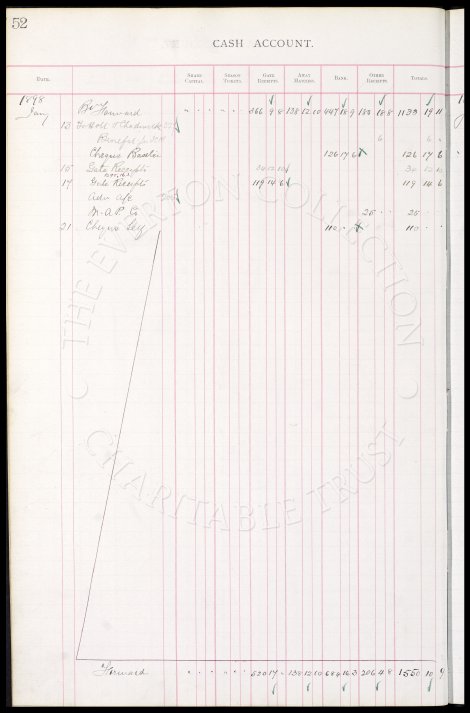 52
CASH ACCOUNT.
DATE. SHARE CAPITAL. SEASON TICKETS. GATE RECEIPTS. AWAY MATCHES. BANK. OTHER RECEIPTS. TOTALS.
1898
Jany Bt Forward 366 9 8 138 12 10 447 18 9 180 18 8 1133 19 11
13
6 6
Cheques 126 17 6 126 17 6
15 Gate Receipts 30 12 10 30 12 10
17 Gate Receipts 119 14 6 119 14 6
Adv a/c
25 25
21 Cheque Self 110 110
Forward 520 17 138 12 10 684 16 3 206 4 8 1550 10 9
THE EVERTON COLLECTION
CHARITABLE TRUST